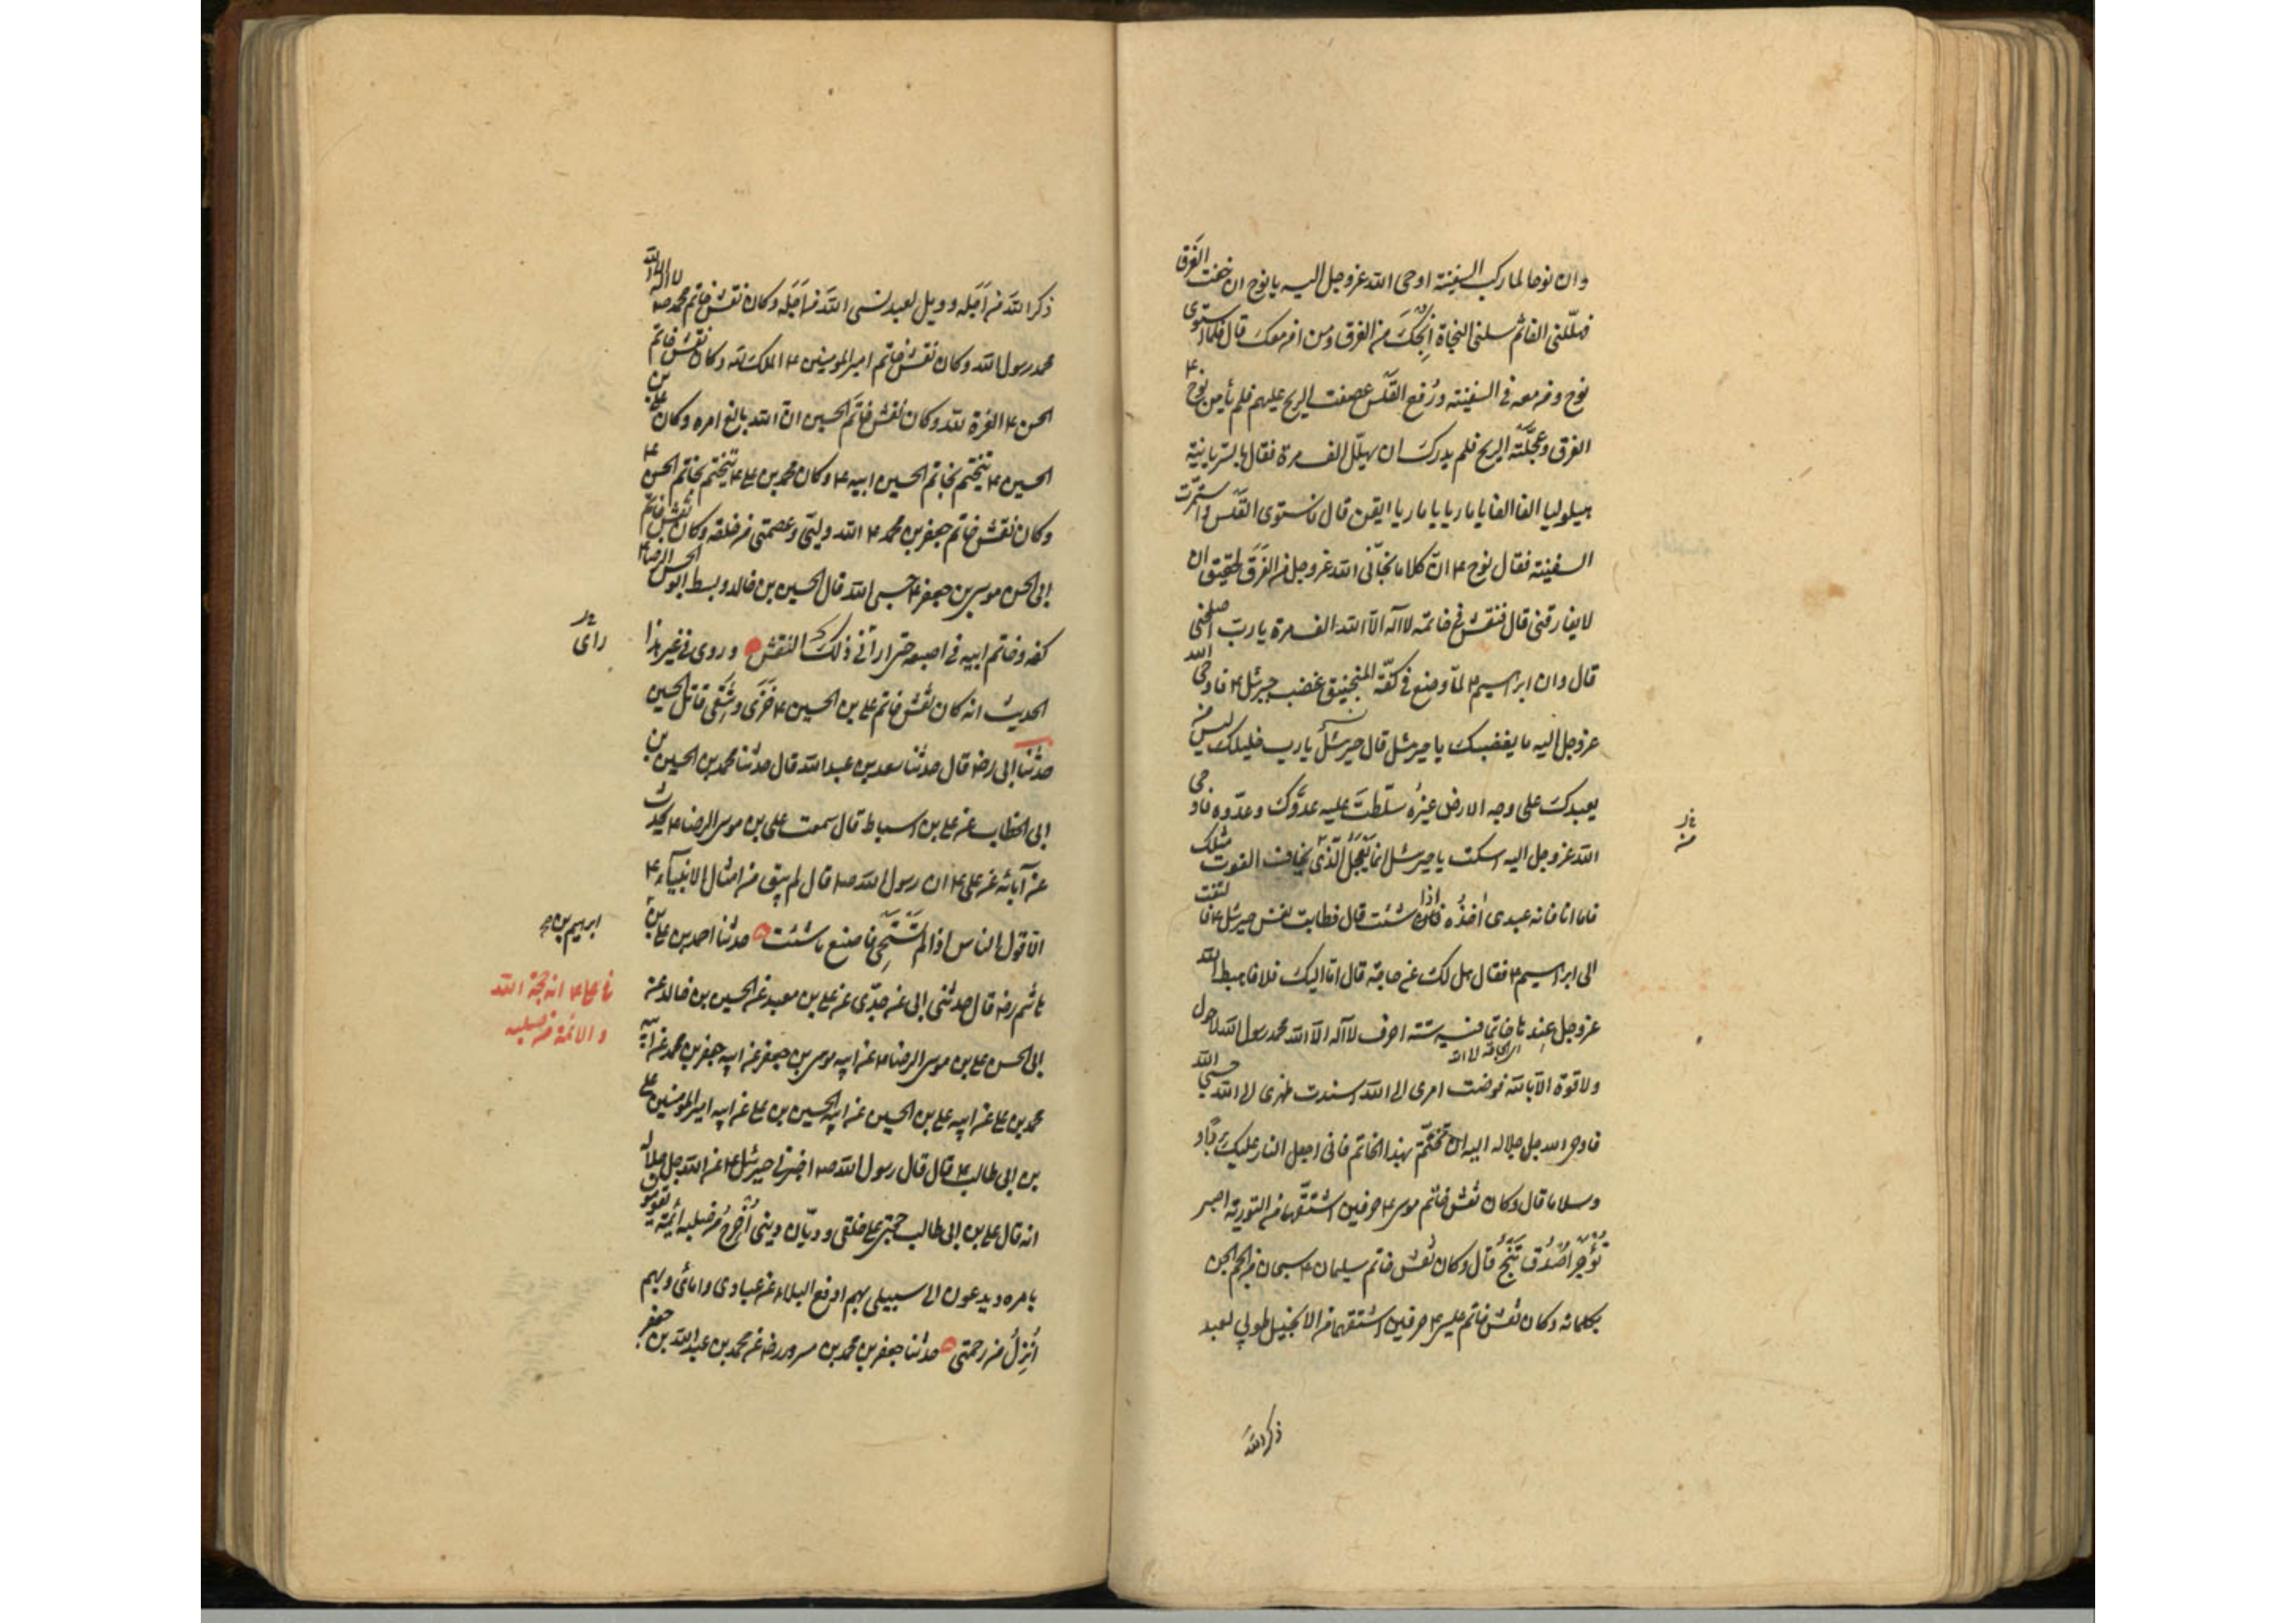 وان نوحا لما ركب السفينة اوحى الله عز وجل اليه يا نوح ان خفت الغرق
فهللني الفا ثم سلني النجاة انجك من الغرق ومن امن معك قال فلما استوى
نوح ومن معه في السفينة ورفع القلس عصفت الريح عليهم فلم يأمن نوح ع
الغرق وعجلته الريح فلم يدرك ان يهلل الف مرة فقال بالسريانية
هيلوليا الفا الفا يا ماريا يا ماريا ايقن قال فاستوى القلس واستمرت
السفينة فقال نوح ع ان كلاما نجاني الله عز وجل من الغرق لحقيق ان
لا يفارقني قال فنقش في خاتمه لا اله الا الله الف مرة يا رب اصلحني
قال وان ابرهيم ع لما وضع في كفة المنجنيق غضب جبرئيل ع فاوحى الله
عز وجل اليه ما يغضبك يا جبرئيل قال جبرئيل يا رب خليلك ليس من
يعبدك على وجه الارض غيره سلطت عليه عدوك وعدوه فاوحى
الله عز وجل اليه اسكت يا جبرئيل انما يعجل الذي يخاف الفوت مثلك
فاما انا فانه عبدي اخذه اذا شئت قال فطابت نفس جبرئيل ع فالتفت
الى ابرهيم ع فقال هل لك من حاجة قال اما اليك فلا فاهبط الله
عز وجل عندها خاتما فيه ستة احرف لا اله الا الله محمد رسول الله لا حول
ولا قوة الا بالله فوضت امري الى الله اسندت ظهري الى الله حسبي الله
فاوحى الله جل جلاله اليه ان تختم بهذا الخاتم فاني اجعل النار عليك بردا و
وسلاما قال وكان نقش خاتم موسى ع حرفين اشتقهما من التورية اصبر
تؤجر اصدق تنج قال وكان نقش خاتم سليمان ع سبحان من الجم الجن
بكلماته وكان نقش خاتم عيسى ع حرفين اشتقهما من الانجيل طوبى لعبد
ذكر الله
ذكر الله من اجله وويل لعبد نسي الله من اجله وكان نقش خاتم محمد ص لا اله الا الله
محمد رسول الله وكان نقش خاتم امير المومنين ع الملك لله وكان نقش خاتم
الحسن ع العزة لله وكان نقش خاتم الحسين ان الله بالغ امره وكان علي بن
الحسين ع يتختم بخاتم الحسين ابيه ع وكان محمد بن علي ع يتختم بخاتم الحسين ع
وكان نقش خاتم جعفر بن محمد ع الله وليي وعصمتي من خلقه وكان نقش خاتم
ابى الحسن موسى بن جعفر ع حسبي الله قال الحسين بن خالد وبسط ابو الحسن الرضا ع
كفه وخاتم ابيه في اصبعه حتى اراني ذلك النقش وروى في غير هذا
الحديث انه كان نقش خاتم علي بن الحسين ع خزي وشقي قاتل الحسين
حدثنا ابى رضه قال حدثنا سعد بن عبد الله قال حدثنا محمد بن الحسين بن
ابى الخطاب عن علي بن اسباط قال سمعت علي بن موسى الرضا ع يحدث
عن آبائه عن علي ع ان رسول الله ص قال لم يبق من امثال الانبياء ع
الا قول الناس اذا لم تستحي فاصنع ما شئت حدثنا احمد بن علي بن
هاشم رضه قال حدثني ابى عن جدي عن علي بن معبد عن الحسين بن خالد عن
ابى الحسن علي بن موسى الرضا ع عن ابيه موسى بن جعفر عن ابيه جعفر بن محمد عن ابيه
محمد بن علي عن ابيه علي بن الحسين عن ابيه الحسين بن علي عن ابيه امير المومنين علي
بن ابى طالب ع قال قال رسول الله ص اخبرني جبرئيل ع عن الله جل جلاله
انه قال علي بن ابى طالب حجتي على خلقي وديان ديني أخرج من صلبه ائمة يقومون
بامره ويدعون الى سبيلي بهم ادفع البلاء عن عبادي وامائي وبهم
أنزل من رحمتي حدثنا جعفر بن محمد بن مسرور رضه عن محمد بن عبد الله بن جعفر
راي
ابرهيم بن
في علي ع انه حجة الله
والائمة من صلبه